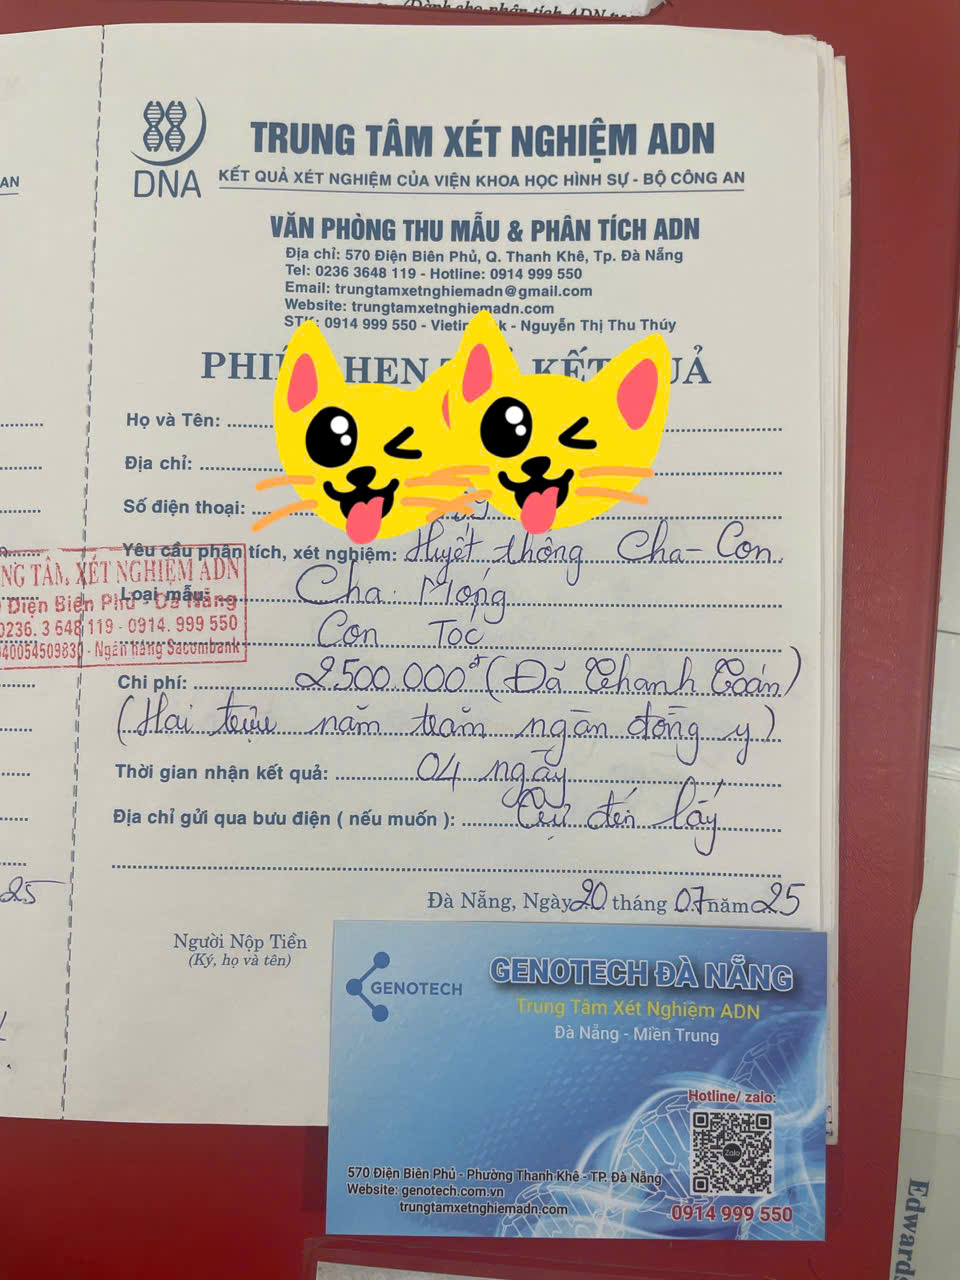 (Dành cho phân tích ADN
DNA
TRUNG TÂM XÉT NGHIỆM ADN
KẾT QUẢ XÉT NGHIỆM CỦA VIỆN KHOA HỌC HÌNH SỰ - BỘ CÔNG AN
AN
VĂN PHÒNG THU MẪU & PHÂN TÍCH ADN
Địa chỉ: 570 Điện Biên Phủ, Q. Thanh Khê, Tp. Đà Nẵng
Tel: 0236 3648 119 - Hotline: 0914 999 550
Email: trungtamxetnghiemadn@gmail.com
Website: trungtamxetnghiemadn.com
STK: 0914 999 550 - Nguyễn Thị Thu Thúy
Họ và Tên:
Địa chỉ:
Số điện thoại:
Yêu cầu phân tích, xét nghiệm: Huyết thống Cha - Con
Loại mẫu: Cha: Móng
Con Tóc
NG TÂM XÉT NGHIỆM ADN
Điện Biên Phủ - Đà Nẵng
0236. 3 648 119 - 0914. 999 550
40054509830 - Ngân hàng Sacombank
Chi phí: 2500.000đ (Đã thanh toán)
(Hai triệu năm trăm ngàn đồng y)
Thời gian nhận kết quả: 04 ngày
Địa chỉ gửi qua bưu điện ( nếu muốn ): Tự đến lấy
25
Đà Nẵng, Ngày 20 tháng 07 năm 25
Người Nộp Tiền
(Ký, họ và tên)
GENOTECH
GENOTECH ĐÀ NẴNG
Trung Tâm Xét Nghiệm ADN
Đà Nẵng - Miền Trung
Hotline/ zalo:
Zalo
570 Điện Biên Phủ - Phường Thanh Khê - TP. Đà Nẵng
Website: genotech.com.vn
trungtamxetnghiemadn.com
0914 999 550
Edward